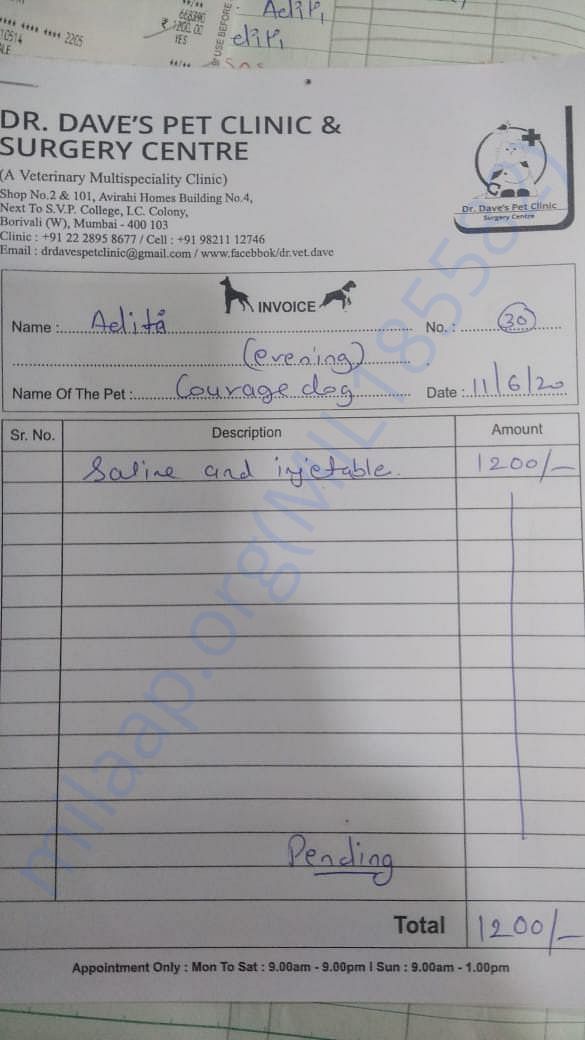 **** **** **** 2205
0514
668390
₹ 1200.00
YES
USE BEFORE
Aditi
diti
DR. DAVE'S PET CLINIC &
SURGERY CENTRE
(A Veterinary Multispeciality Clinic)
Shop No.2 & 101, Avirahi Homes Building No.4,
Next To S.V.P. College, I.C. Colony,
Borivali (W), Mumbai - 400 103
Clinic : +91 22 2895 8677 / Cell : +91 98211 12746
Email : drdavespetclinic@gmail.com / www.facebbok/dr.vet.dave
Dr. Dave's Pet Clinic
Surgery Centre
INVOICE
Name : Aditi No. : 30
(evening)
Name Of The Pet : Courage dog Date : 11/6/20
Sr. No. Description Amount
Saline and injetable. 1200/-
Pending
Total 1200/-
Appointment Only : Mon To Sat : 9.00am - 9.00pm I Sun : 9.00am - 1.00pm